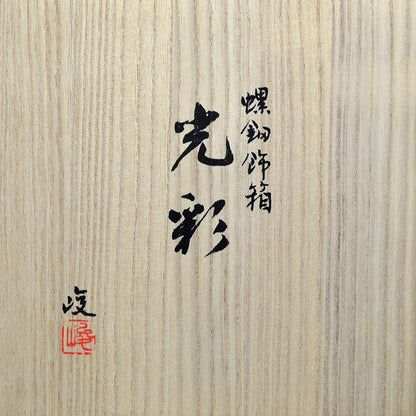 螺鈿飾箱
光彩
峻